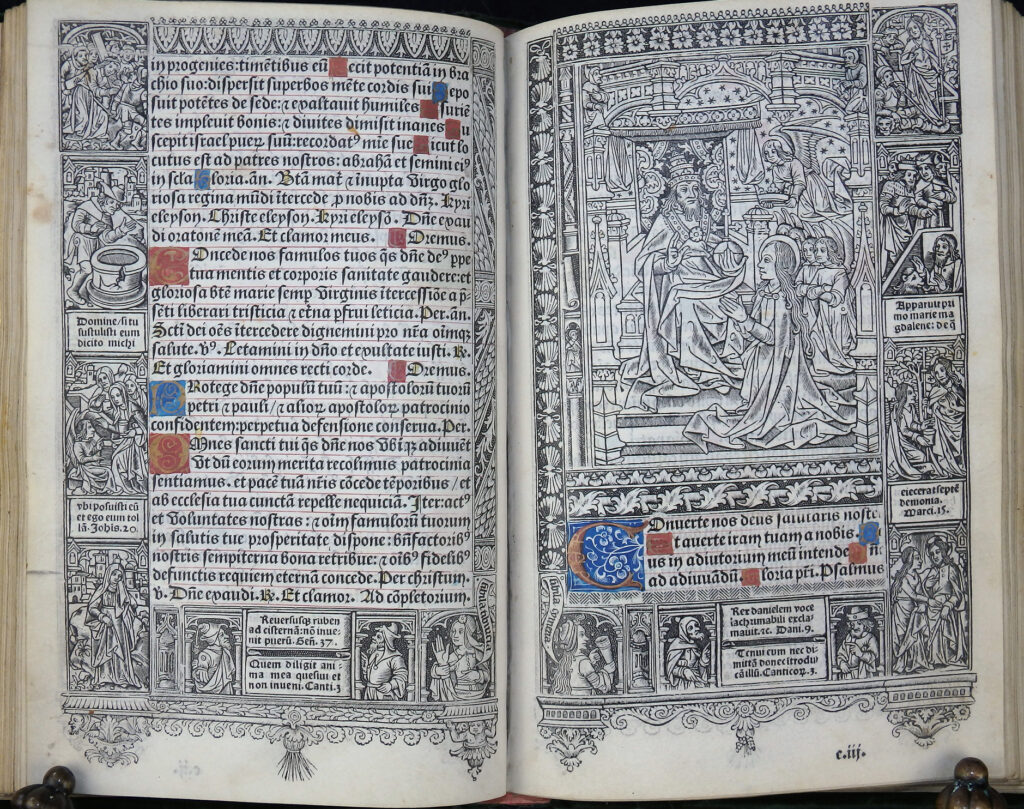 in progenies: timētibus eū ecit potentiā in bra
chio suo: dispersit superbos mēte cordis sui epo
suit potētes de sede: ⁊ exaltavit humiles suriē
tes implevit bonis: ⁊ divites dimisit inanes u
scepit israel pueꝝ suū: recordatꝰ mīe sue icut lo
cutus est ad patres nostros: abrahā et semini eiꝰ
in scla loria. an. Btā mat̄ ⁊ inupta virgo glo
riosa regina mūdi ītercede ꝓ nobis ad dn̄z. Kyri
eleyson. Christe eleyson. Kyri eleysō. Dn̄e exau
di orationē meā. Et clamor meus. Oremus.
Concede nos famulos tuos q̄s dn̄e deꝰ ppe
tua mentis et corporis sanitate gaudere: et
gloriosa btē marie semp virginis ītercessiōe a p̄
sēti liberari tristicia ⁊ et̄na pfrui leticia. Per. an.
Scti dei oēs ītercedere dignemini pro nr̄a oīmqꝫ
salute. v̄. Letamini in dn̄o et exultate iusti. ℟.
Et gloriamini omnes recti corde. Oremus.
Protege dn̄e populū tuū: ⁊ apostolorū tuorū
petri ⁊ pauli / ⁊ alioꝝ apostoloꝝ patrocinio
confidentem: perpetua defensione conserua. Per.
Omnes sancti tui q̄s dn̄e nos vbiqꝫ adiuuēt
vt dū eorum merita recolimus patrocinia
sentiamus. et pacē tuā nr̄is cōcede tēporibus / et
ab ecclesia tua cunctā repelle nequiciā. Iter actꝰ
et voluntates nostras: ⁊ oīm famulorū tuorum
in salutis tue prosperitate dispone: bn̄factoribꝰ
nostris sempiterna bona retribue: ⁊ oībꝰ fidelibꝰ
defunctis requiem eternā concede. Per christum.
v. Dn̄e exaudi. ℟. Et clamor. Ad cōpletorium.
Domine / si tu
sustulisti eum
dicito michi
vbi posuisti eū
et ego eum tol
lā. Johis. 20.
Reversusqꝫ ruben
ad cisternā: nō inue-
nit puerū. Gen̄. 37.
Quem diligit ani-
ma mea quesiui et
non inueni. Canti. 3
Apparuit pri
mo marie ma
gdalene: de q̄
eiecerat septē
demonia.
Marci. 15.
Converte nos deus salutaris noste.
t auerte iram tuam a nobis.
us in adiutorium meū intende n̄
ad adiuvādū. loria pr̄i. Psalmus
Rex danielem voce
lachrimabili excla
mauit. ⁊c. Dani. 9.
Tenui eum nec di-
mittā donec ītrodu
cā illū. Canticoꝝ. 3.
c.iij.